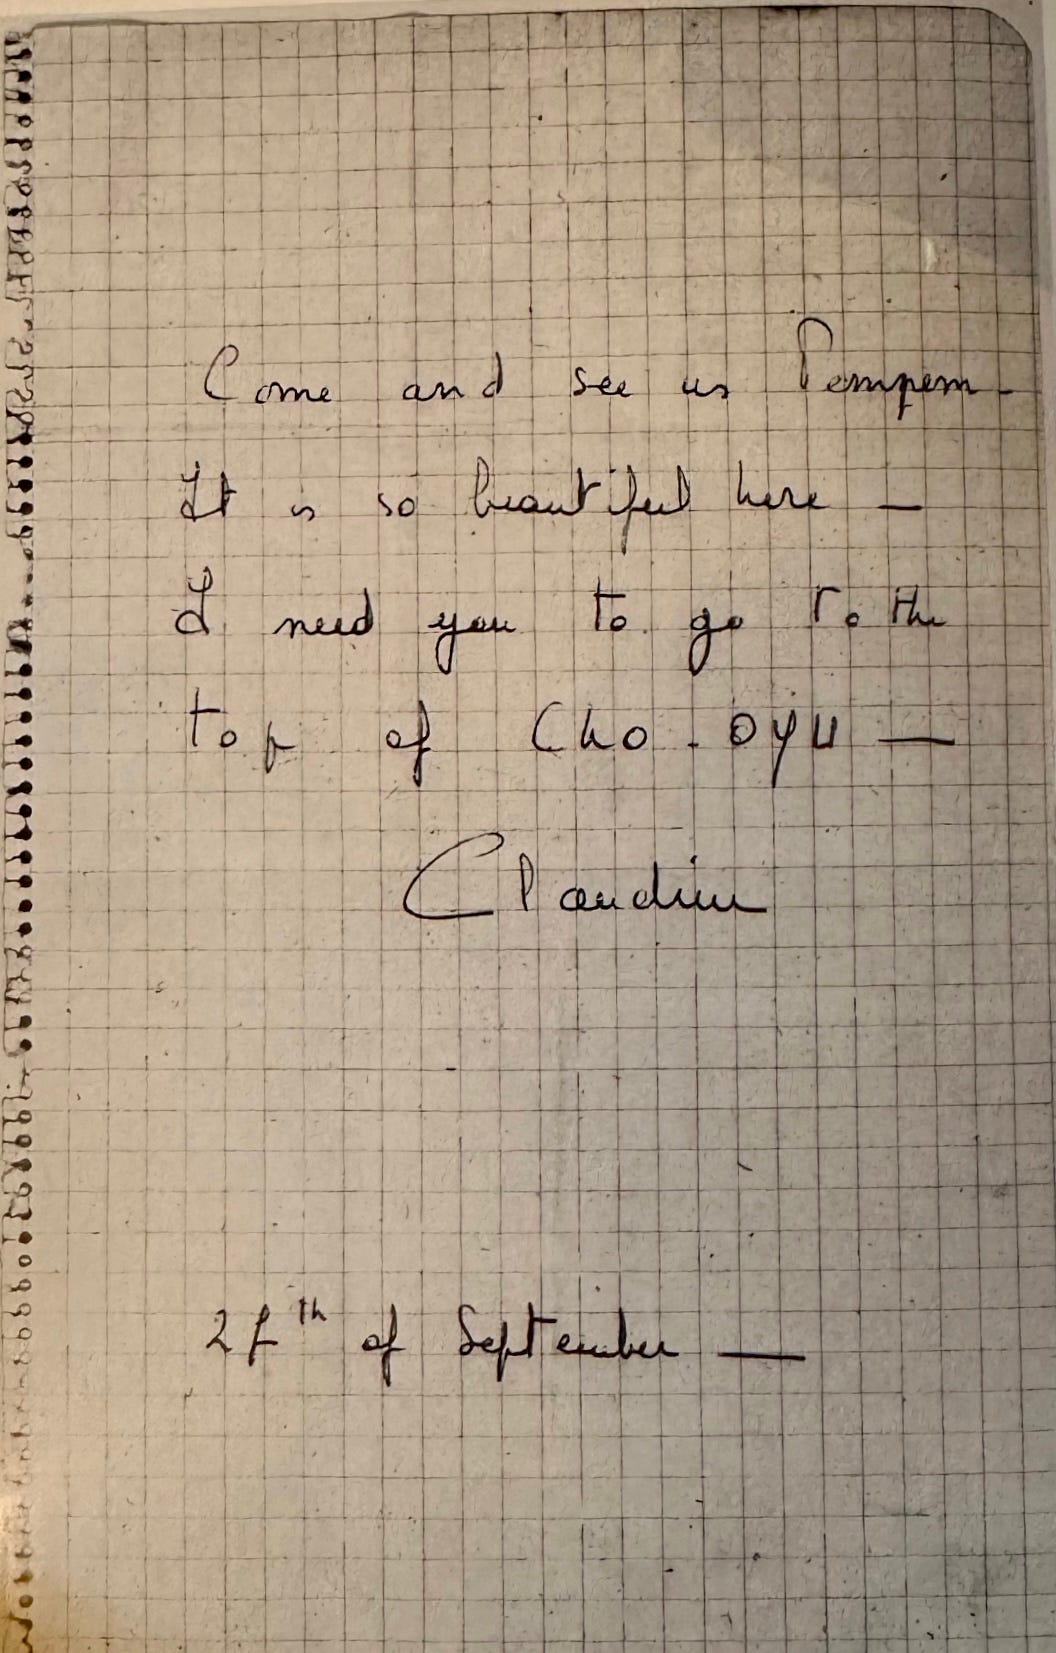 Come and see us Pempem -
It is so beautiful here —
I need you to go to the
top of Cho-OYU —
Claudine
27th of September —